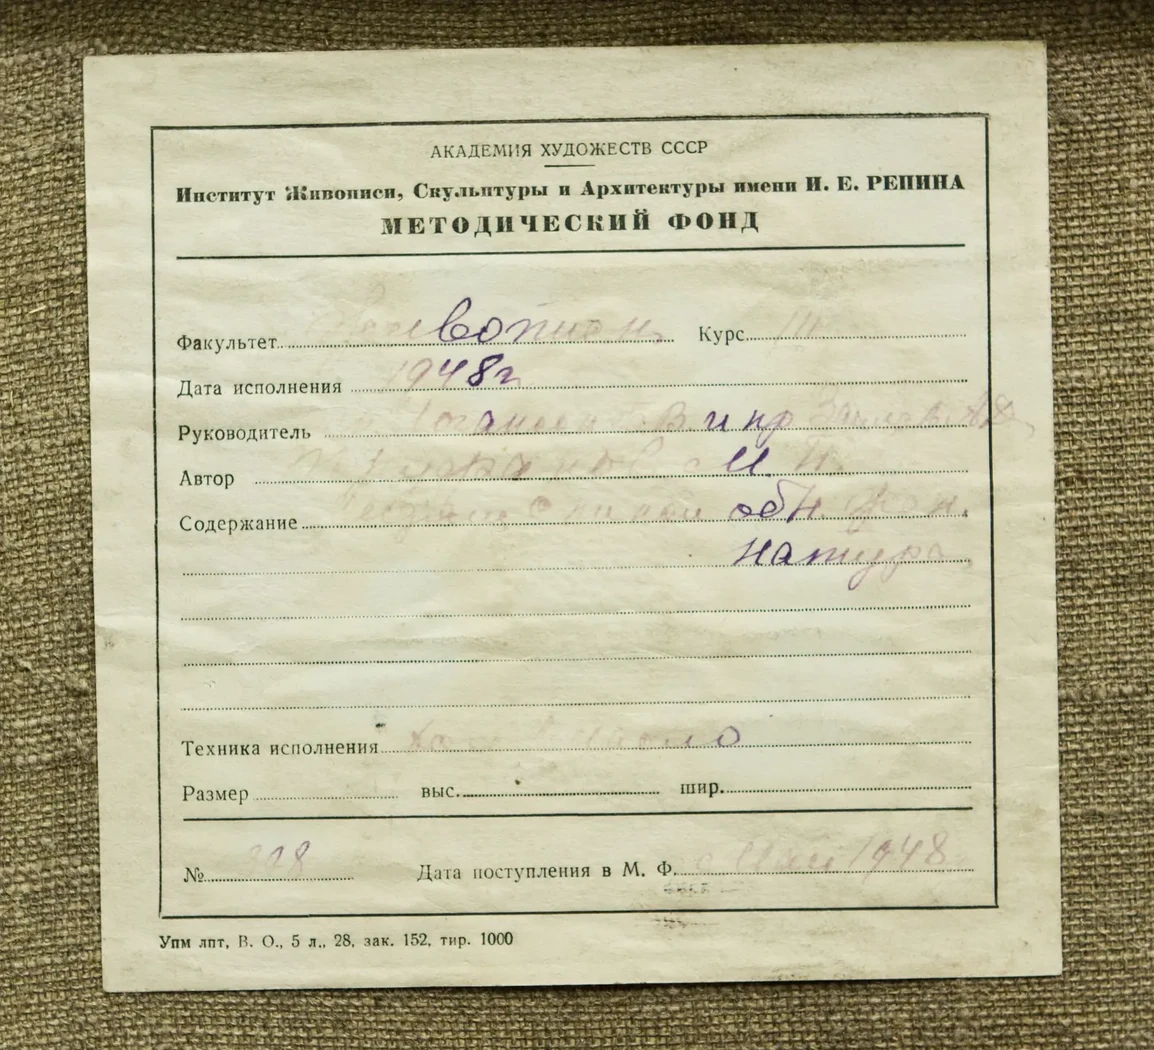 АКАДЕМИЯ ХУДОЖЕСТВ СССР
Институт Живописи, Скульптуры и Архитектуры имени И. Е. РЕПИНА
МЕТОДИЧЕСКИЙ ФОНД
Факультет Курс III
Дата исполнения 1948г
Руководитель и пр
Автор
Содержание обн.
натура
Техника исполнения масло
Размер выс. шир.
№ Дата поступления в М. Ф. Май 1948
Упм лпт, В. О., 5 л., 28, зак. 152, тир. 1000